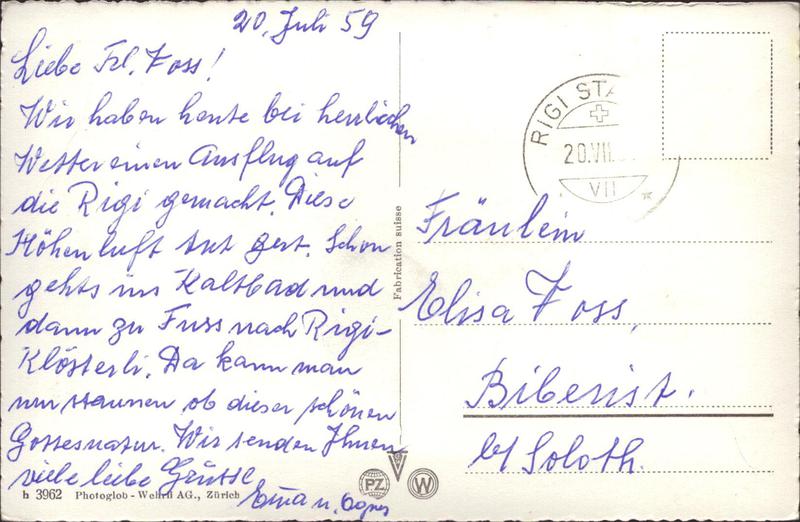 20. Juli 59
Liebe Frl. Foss!
Wir haben heute bei herrlichen
Wetter einen Ausflug auf
die Rigi gemacht. Diese
Höhenluft tut gut. Schon
gehts ins Kaltbad und
dann zu Fuss nach Rigi-
Klösterli. Da kann man
nur staunen ob dieser schönen
Gottesnatur. Wir senden Ihnen
viele liebe Grüsse
Erna u. Agnes
h 3962 Photoglob - Wehrli AG., Zürich
Fabrication suisse
PZ
W
RIGI STA
20.VII.
VII
Fräulein
Elisa Foss,
Biberist.
b/ Soloth.